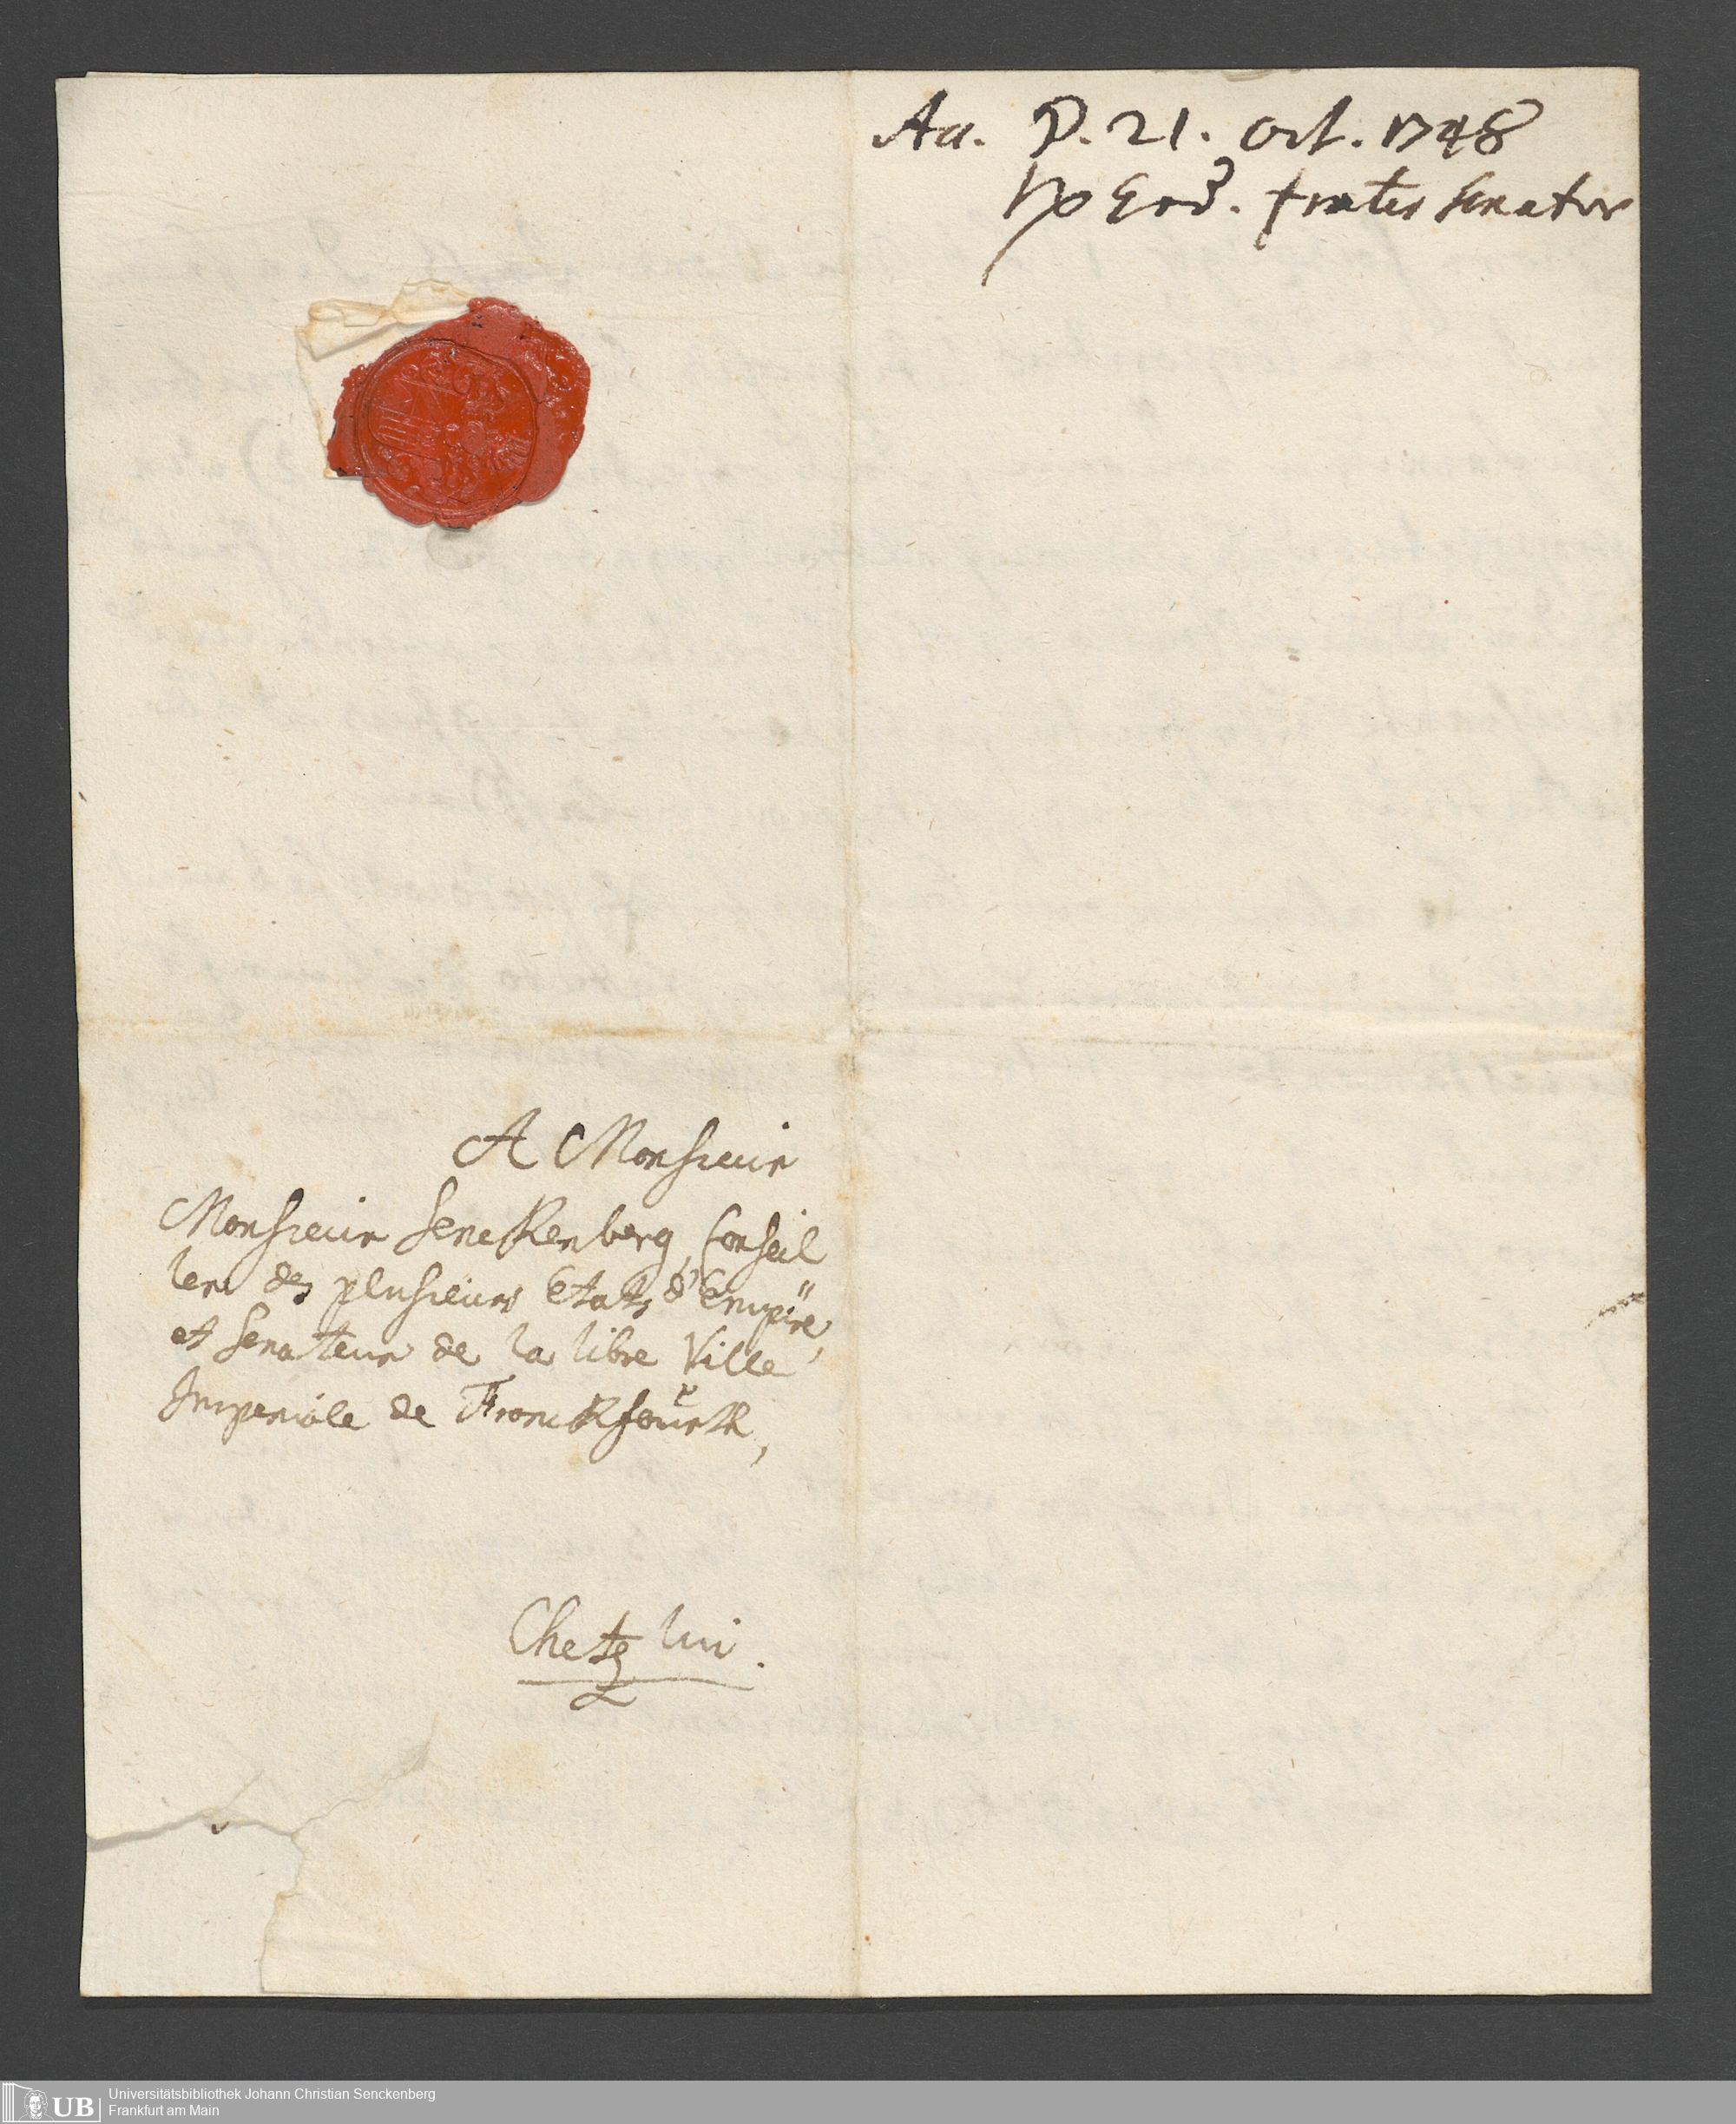 Aa. P. 21. Oct. 1748
Erd. frater Senator
A Monsieur
Monsieur Senckenberg, Conseil
ler des plusieurs Etats d'Empïre,
et Senateur de la libre Ville
Imperiale de Franckfourth,
Chetz lui.
UB
Universitätsbibliothek Johann Christian Senckenberg
Frankfurt am Main